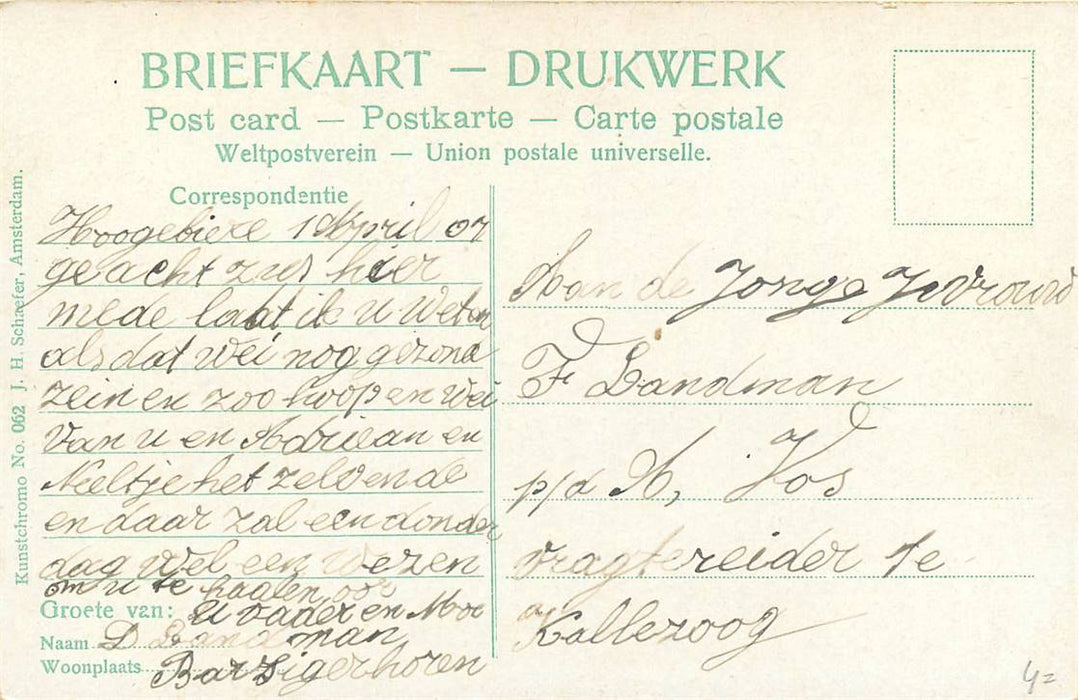 BRIEFKAART — DRUKWERK
Post card — Postkarte — Carte postale
Weltpostverein — Union postale universelle.
Correspondentie
Hoogebiexe 1 April 07
geacht zus hier
mede laat ik u weten
als dat wei nog gezond
zein en zoo hoopen wei
van u en Adriean en
Neeltje het zelvende
en daar zal een donder
dag wel een wezen
om u te haalen
Groete van: u vader en Moe
Naam D Landman
Woonplaats Barzigerhoren
Aan de Jonge Jevrouw
F Landman
p/d A, Vos
vragtreider te
Kallezoog
Kunstchromo No. 062 J. H. Schaefer, Amsterdam.